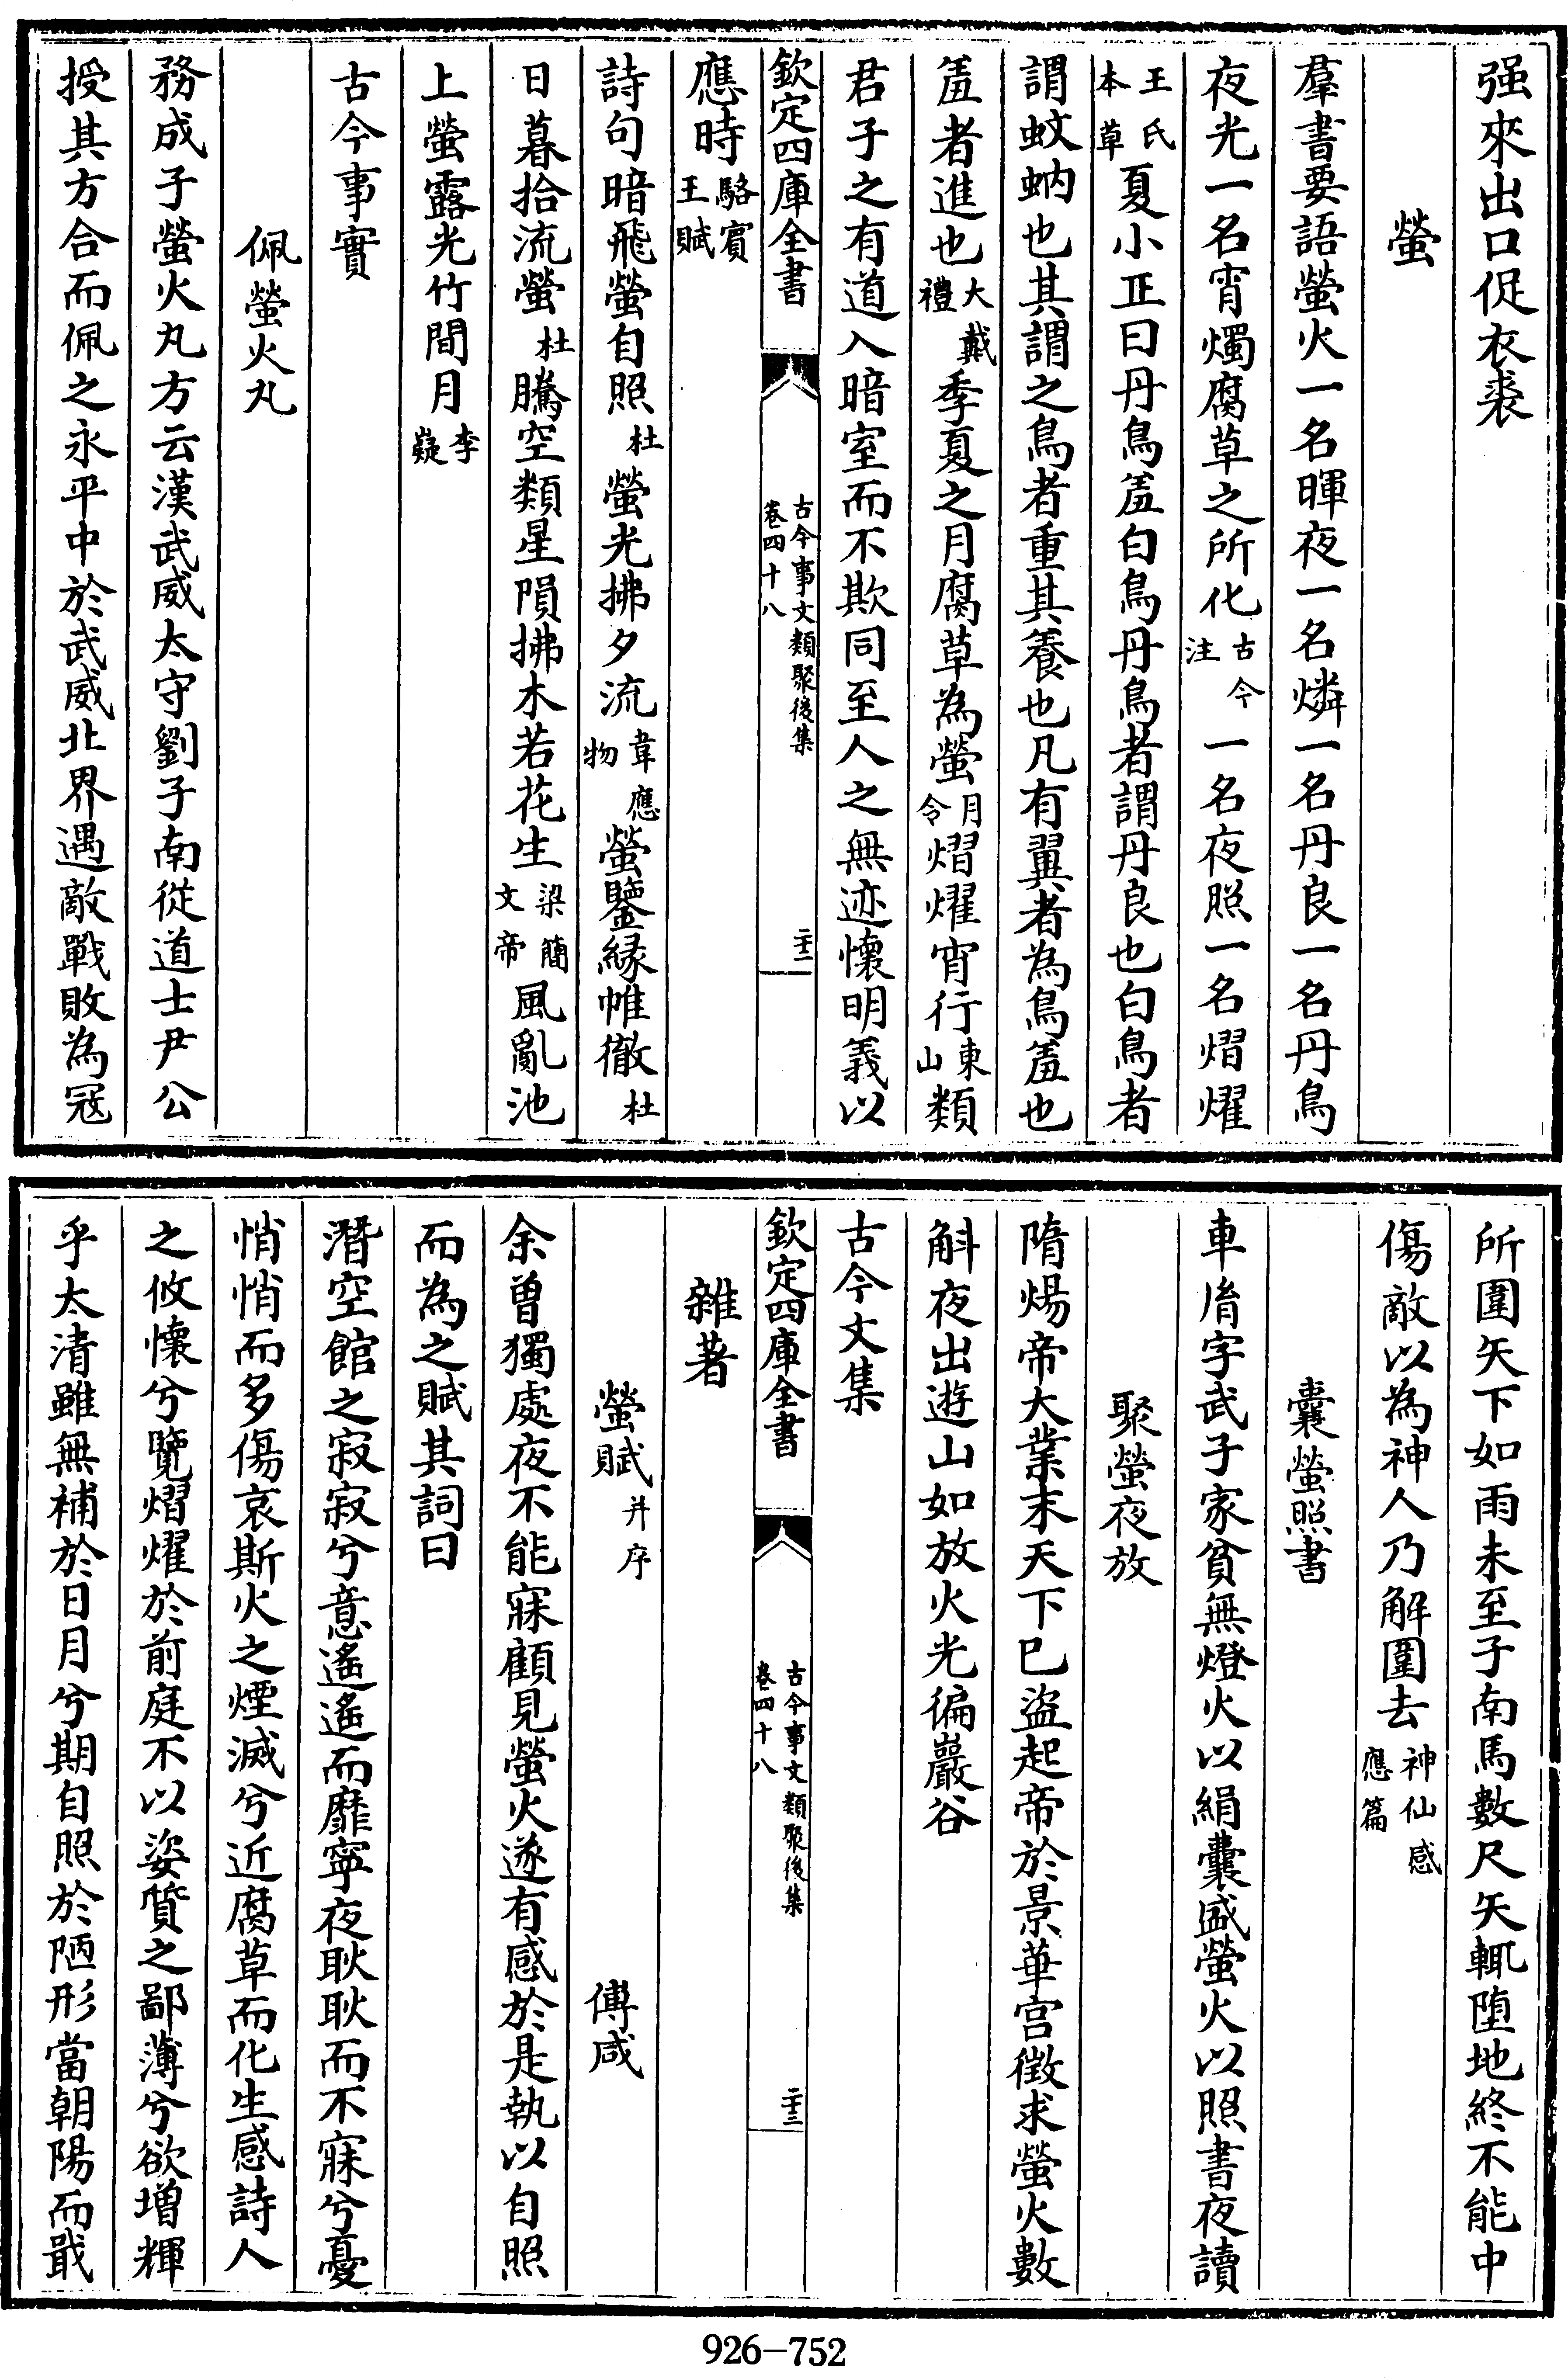 强來出口促衣裘
螢
羣書要語螢火一名暉夜一名燐一名丹良一名丹鳥
夜光一名宵燭腐草之所化古今注一名夜照一名熠燿
王氏本草夏小正曰丹鳥羞白鳥丹鳥者謂丹良也白鳥者
謂蚊蚋也其謂之鳥者重其養也凡有翼者為鳥羞也
羞者進也大戴禮季夏之月腐草為螢月令熠燿宵行東山類
君子之有道入暗室而不欺同至人之無迹懷明義以
欽定四庫全書 古今事文類聚後集卷四十八 二十二
應時駱賓王賦
詩句暗飛螢自照杜螢光拂夕流韋應物螢鑒緣帷徹杜
日暮拾流螢杜騰空類星隕拂木若花生梁簡文帝風亂池
上螢露光竹間月李嶷
古今事實
佩螢火丸
務成子螢火丸方云漢武威太守劉子南從道士尹公
授其方合而佩之永平中於武威北界遇敵戰敗為冦
所圍矢下如雨未至子南馬數尺矢輒墮地終不能中
傷敵以為神人乃解圍去神仙感應篇
囊螢照書
車胤字武子家貧無燈火以絹囊盛螢火以照書夜讀
聚螢夜放
隋煬帝大業末天下已盜起帝於景華宫徵求螢火數
斛夜出遊山如放火光徧巖谷
古今文集
欽定四庫全書 古今事文類聚後集卷四十八 二十三
雜著
螢賦并序 傅咸
余曽獨處夜不能寐顧見螢火遂有感於是執以自照
而為之賦其詞曰
潛空館之寂寂兮意遙遙而靡寧夜耿耿而不寐兮憂
悄悄而多傷哀斯火之煙滅兮近腐草而化生感詩人
之攸懷兮覽熠燿於前庭不以姿質之鄙薄兮欲增輝
乎太清雖無補於日月兮期自照於陋形當朝陽而戢
926-752